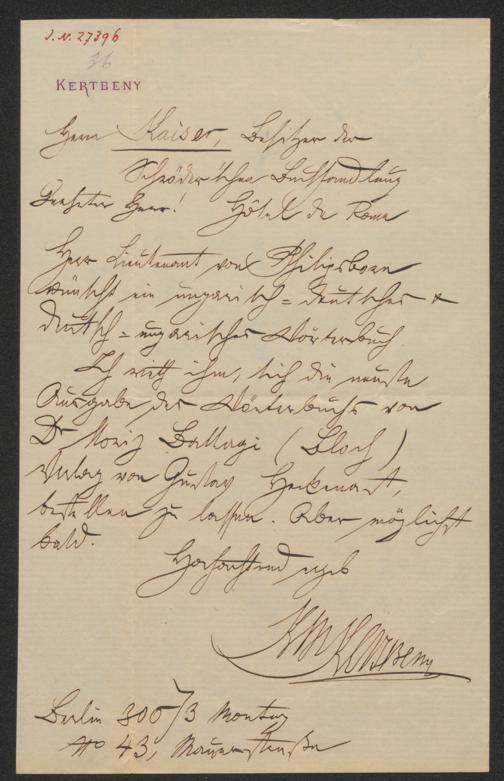 J.N. 27396
36
KERTBENY
Herrn Kaiser, Besitzer der
Schröder'schen Buchhandlung
Geehrter Herr! Hôtel de Rome
Herr Lieutenant von Philipsborn
wünscht ein ungarisch=deutsches &
deutsch=ungarisches Wörterbuch.
Ich rieth ihm, sich die neuste
Ausgabe des Wörterbuchs von
Dr Moriz Ballagi (Bloch)
Verlag von Gustav Heckenast,
bestellen zu lassen. Aber möglichst
bald.
Hochachtend
KMKertbeny
Berlin /3 Montag
No 43, Mauerstraße